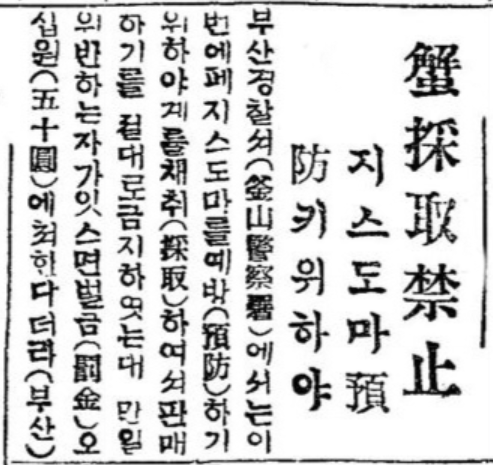 蟹採取禁止
지스도마預
防키위하야
부산경찰서(釜山警察署)에서는이
번에페지스도마를예방(預防)하기
위하야게를채취(採取)하여서판매
하기를 절대로금지하엿는대 만일
위반하는자가잇스면벌금(罰金)오
십원(五十圓)에처한다더라(부산)